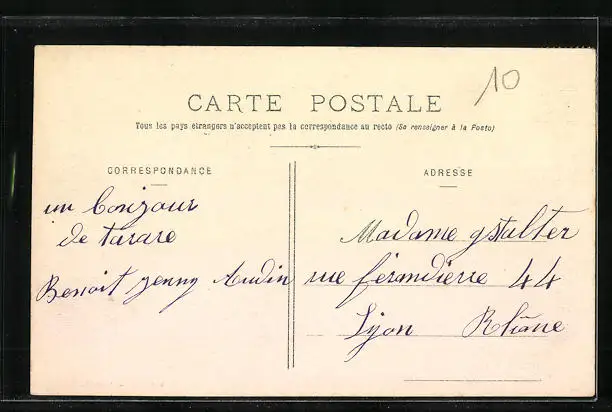 10
CARTE POSTALE
Tous les pays étrangers n'acceptent pas la correspondance au recto (Se renseigner à la Poste)
CORRESPONDANCE
un bonjour
de tarare
Benoit jenny Audin
ADRESSE
Madame gstalter
rue férandierre 44
Lyon Rhône